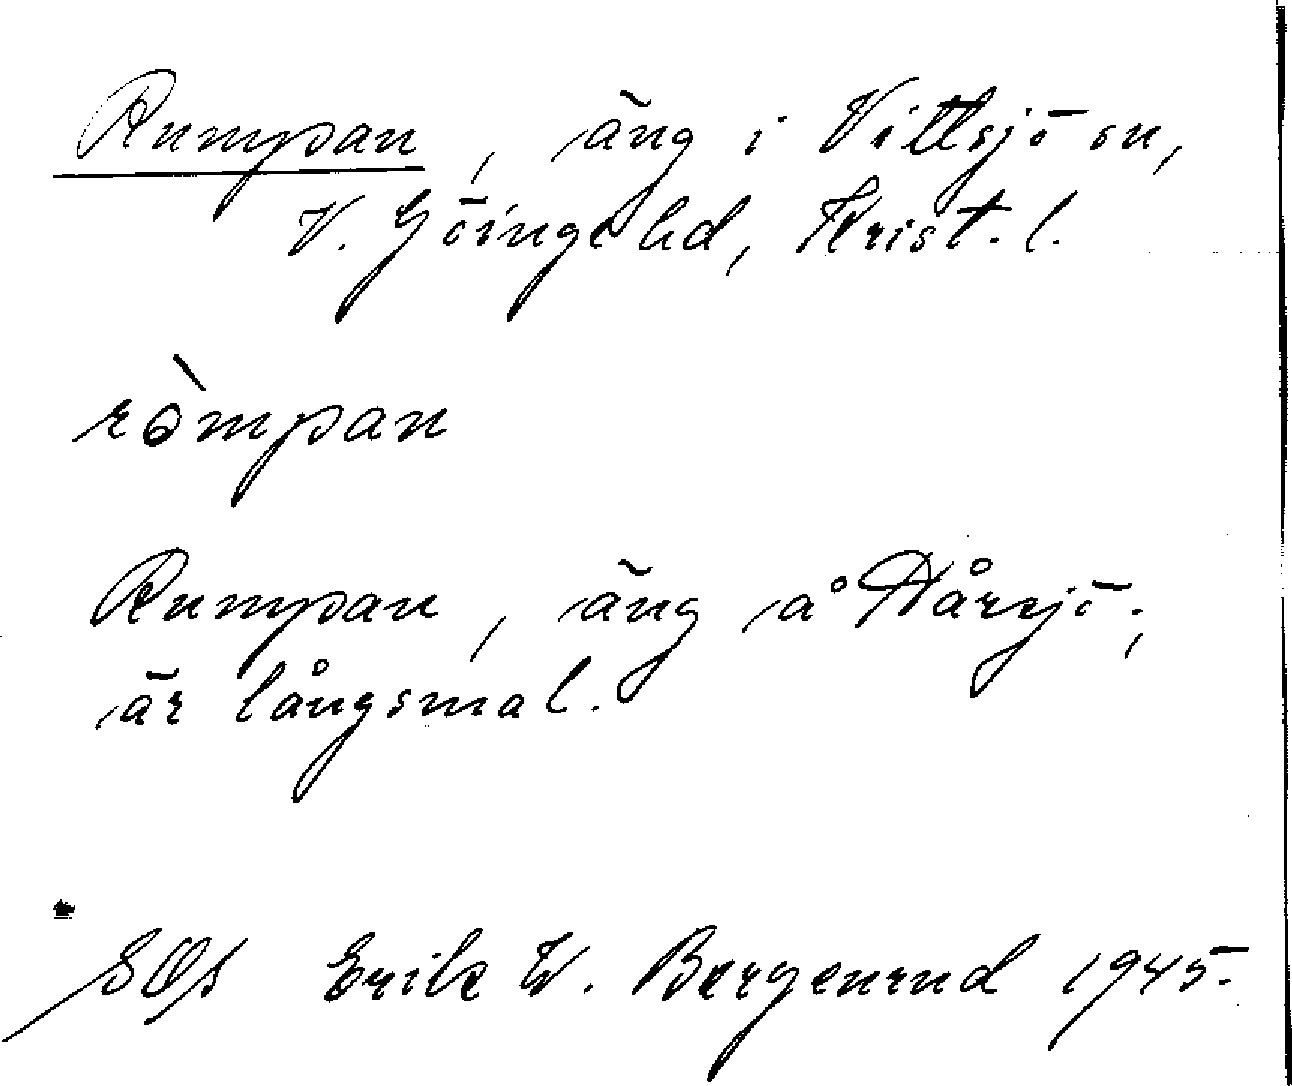 Rumpan, äng i Vittsjö sn,
V. Göinge hd, Krist. l.
ròmpan
Rumpan, äng å Hårsjö;
är långsmal.
Erik W. Bergenrud 1945.